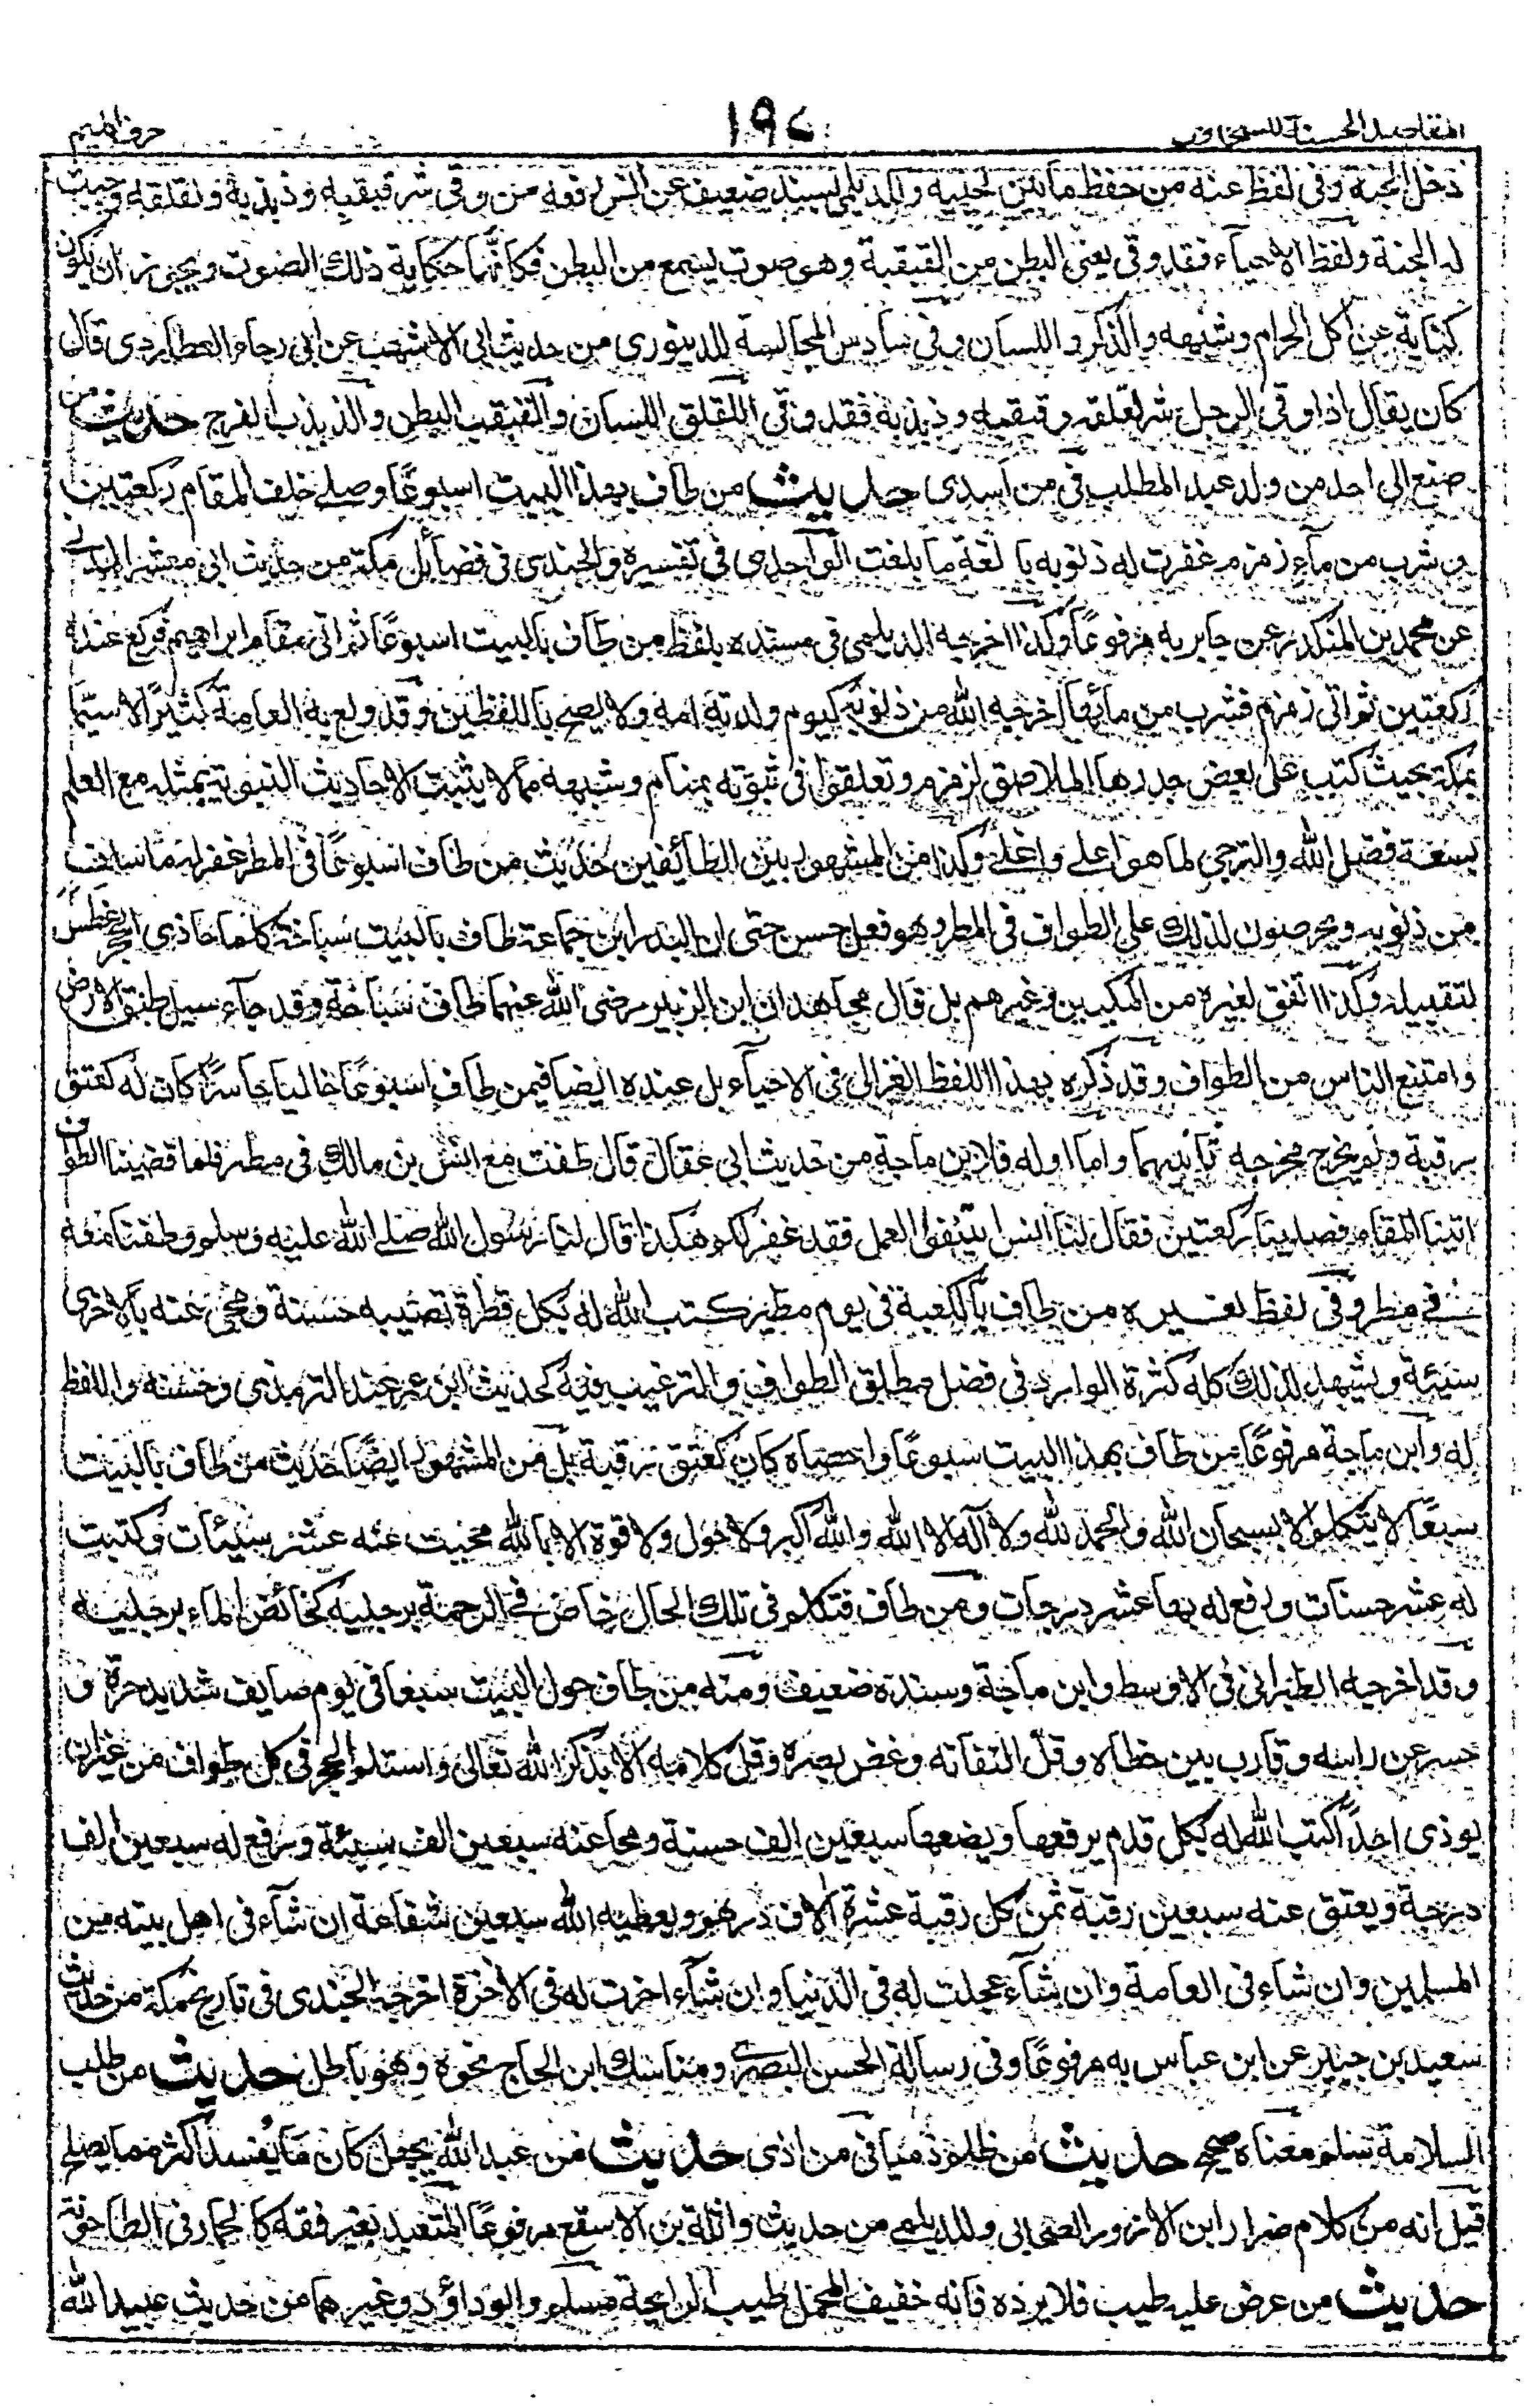 المقاصد الحسنة للسخاوى
١٩٧
حرف الميم
دخل الجنة وفى لفظ عنه من حفظ ما بين لحييه وللديلمى بسند ضعيف عن انس رفعه من وقى شر قبقبه وذبذبه ولقلقه وجبت
له الجنة ولفظ الاحياء فقد وقى يعنى البطن من القبقبة وهو صوت يسمع من البطن فكانها حكاية ذلك الصوت ويجوز ان يكون
كناية عن اكل الحرام وشبهه والذكر واللسان وفى سادس المجالسة للدينورى من حديث ابى الاشهب عن ابى رجاء العطاردى قال
كان يقال اذا وقى الرجل شر لقلقه وقبقبه وذبذبه فقد وقى اللقلق اللسان والقبقب البطن والذبذب الفرج حديث من
صنع الى احد من ولد عبد المطلب فى من اسدى حديث من طاف بهذا البيت اسبوعًا وصلے خلف المقام ركعتين
وشرب من ماء زمزم غفرت له ذنوبه بالغة ما بلغت الواحدى فى تفسيره والجندى فى فضائل مكة من حديث ابى معشر المدنى
عن محمد بن المنكدر عن جابر به مرفوعًا وكذا اخرجه الديلمى فى مسنده بلفظ من طاف بالبيت اسبوعًا ثم اتى مقام ابراهيم فركع عنده
ركعتين ثم اتى زمزم فشرب من مائها اخرجه الله من ذنوبه كيوم ولدته امه ولا يصح باللفظين وقد ولع به العامة كثيرًا لا سيما
بمكة بحيث كتب على بعض جدرها الملاصق لزمزم وتعلقوا فى ثبوته بمنام وشبهه مما لا يثبت الاحاديث النبوية بمثله مع العلم
بسعة فضل الله والترجى لما هو اعلے واغلے وكذا من المشهور بين الطائفين حديث من طاف اسبوعًا فى المطر غفر له ما سلف
من ذنوبه ويحرصون لذلك على الطواف فى المطر وهو فعل حسن حتى ان البدر ابن جماعة طاف بالبيت سباحة كلما حاذى الحجر غطس
لتقبيله وكذا اتفق لغيره من المكيين وغيرهم بل قال مجاهد ان ابن الزبير رضى الله عنهما طاف سباحة وقد جاء سيل طبق الارض
وامتنع الناس من الطواف وقد ذكره بهذا اللفظ الغزالى فى الاحياء بل عنده ايضا فيمن طاف اسبوعًا خاليا حاسرًا كان له كعتق
رقبة ولم يخرج مخرجه ثانيهما واما اوله فلابن ماجة من حديث ابى عقال قال طفت مع انس بن مالك فى مطر فلما قضينا الطواف
اتينا المقام فصلينا ركعتين فقال لنا انس ايتنفوا العمل فقد غفر لكم هكذا قال لنا رسول الله صلے الله عليه وسلم وطفنا معه
فى مطر وفى لفظ لغيره من طاف بالكعبة فى يوم مطير كتب الله له بكل قطرة تصيبه حسنة ومحى عنه بالاخرى
سيئة ويشهد لذلك كله كثرة الوارد فى فضل مطلق الطواف والترغيب فيه كحديث ابن عمر عند الترمذى وحسنه واللفظ
له وابن ماجة مرفوعًا من طاف بهذا البيت سبوعًا واحصاه كان كعتق رقبة بل من المشهور ايضًا حديث من طاف بالبيت
سبعًا لا يتكلم الا بسبحان الله والحمد لله ولا اله الا الله والله اكبر ولا حول ولا قوة الا بالله محيت عنه عشر سيئات وكتبت
له عشر حسنات ورفع له بها عشر درجات ومن طاف فتكلم فى تلك الحال خاض فى الرحمة برجليه كخائض الماء برجليه
وقد اخرجه الطبرانى فى الاوسط وابن ماجة وسنده ضعيف ومنه من طاف حول البيت سبعا فى يوم صايف شديد حرة و
حسر عن راسه وقارب بين خطاه وقل التفاته وغض بصره وقل كلامه الا بذكر الله تعالى واستلم الحجر فى كل طواف من غير ان
يوذى احدًا كتب الله له بكل قدم يرفعها ويضعها سبعين الف حسنة ومحا عنه سبعين الف سيئة ورفع له سبعين الف
درجة ويعتق عنه سبعين رقبة ثمن كل رقبة عشرة الاف درهم ويعطيه الله سبعين شفاعة ان شاء فى اهل بيته من
المسلمين وان شاء فى العامة وان شاء عجلت له فى الدنيا وان شاء اخرت له فى الاخرة اخرجه الجندى فى تاريخ مكة من حديث
سعيد بن جبير عن ابن عباس به مرفوعًا وفى رسالة الحسن البصرى ومناسك ابن الحاج نحوه وهو باطل حديث من طلب
السلامة سلم معناه صحيح حديث من ظلم ذميا فى من اذى حديث من عبد الله بجهل كان ما يفسد اكثر مما يصلح
قيل انه من كلام ضرار ابن الازور الصحابى وللديلمے من حديث واثلة بن الاسقع مرفوعًا المتعبد بغير فقه كالحمار فى الطاحونة
حديث من عرض عليه طيب فلا يرده فانه خفيف المحمل طيب الرايحة مسلم وابو داؤد وغيرهما من حديث عبيد الله